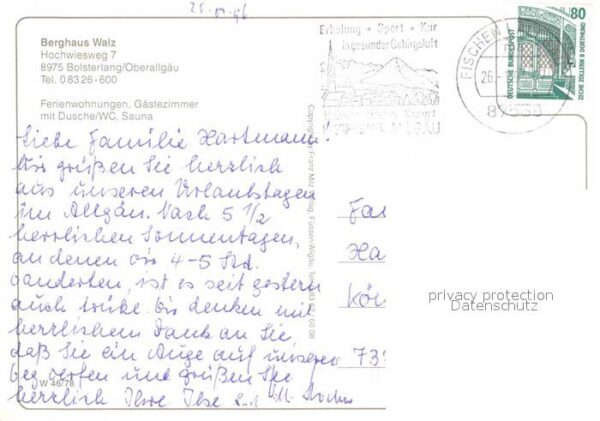 Berghaus Walz
Hochwiesweg 7
8975 Bolsterlang/Oberallgäu
Tel. 0 83 26 - 600
Ferienwohnungen, Gästezimmer
mit Dusche/WC, Sauna
Erholung + Sport + Kur
in gesunder Gebirgsluft
FISCHEN
26
87538
80
DEUTSCHE BUNDESPOST
ZECHE ZOLLERN II DORTMUND
Liebe Familie Hartmann!
Wir grüßen Sie herzlich
aus unseren Urlaubstagen
im Allgäu. Nach 5 1/2
herrlichen Sonnentagen,
an denen wir 4-5 Std.
wanderten, ist es seit gestern
auch trübe. Wir denken mit
herzlichem Dank an Sie,
daß Sie ein Auge auf unseren
werfen und grüßen Sie
herzlich Ihre Ilse u. M.
W 46/78
Fa
Ha
Kö
73
privacy protection
Datenschutz